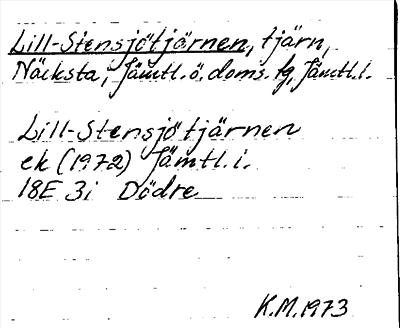 Lill-Stensjötjärnen, tjärn,
Näcksta, Jämtl. ö. doms. tg, Jämtl. l.
Lill-Stensjötjärnen
ek (1972) Jämtl. i.
18E 3i Dödre
K.M. 1973